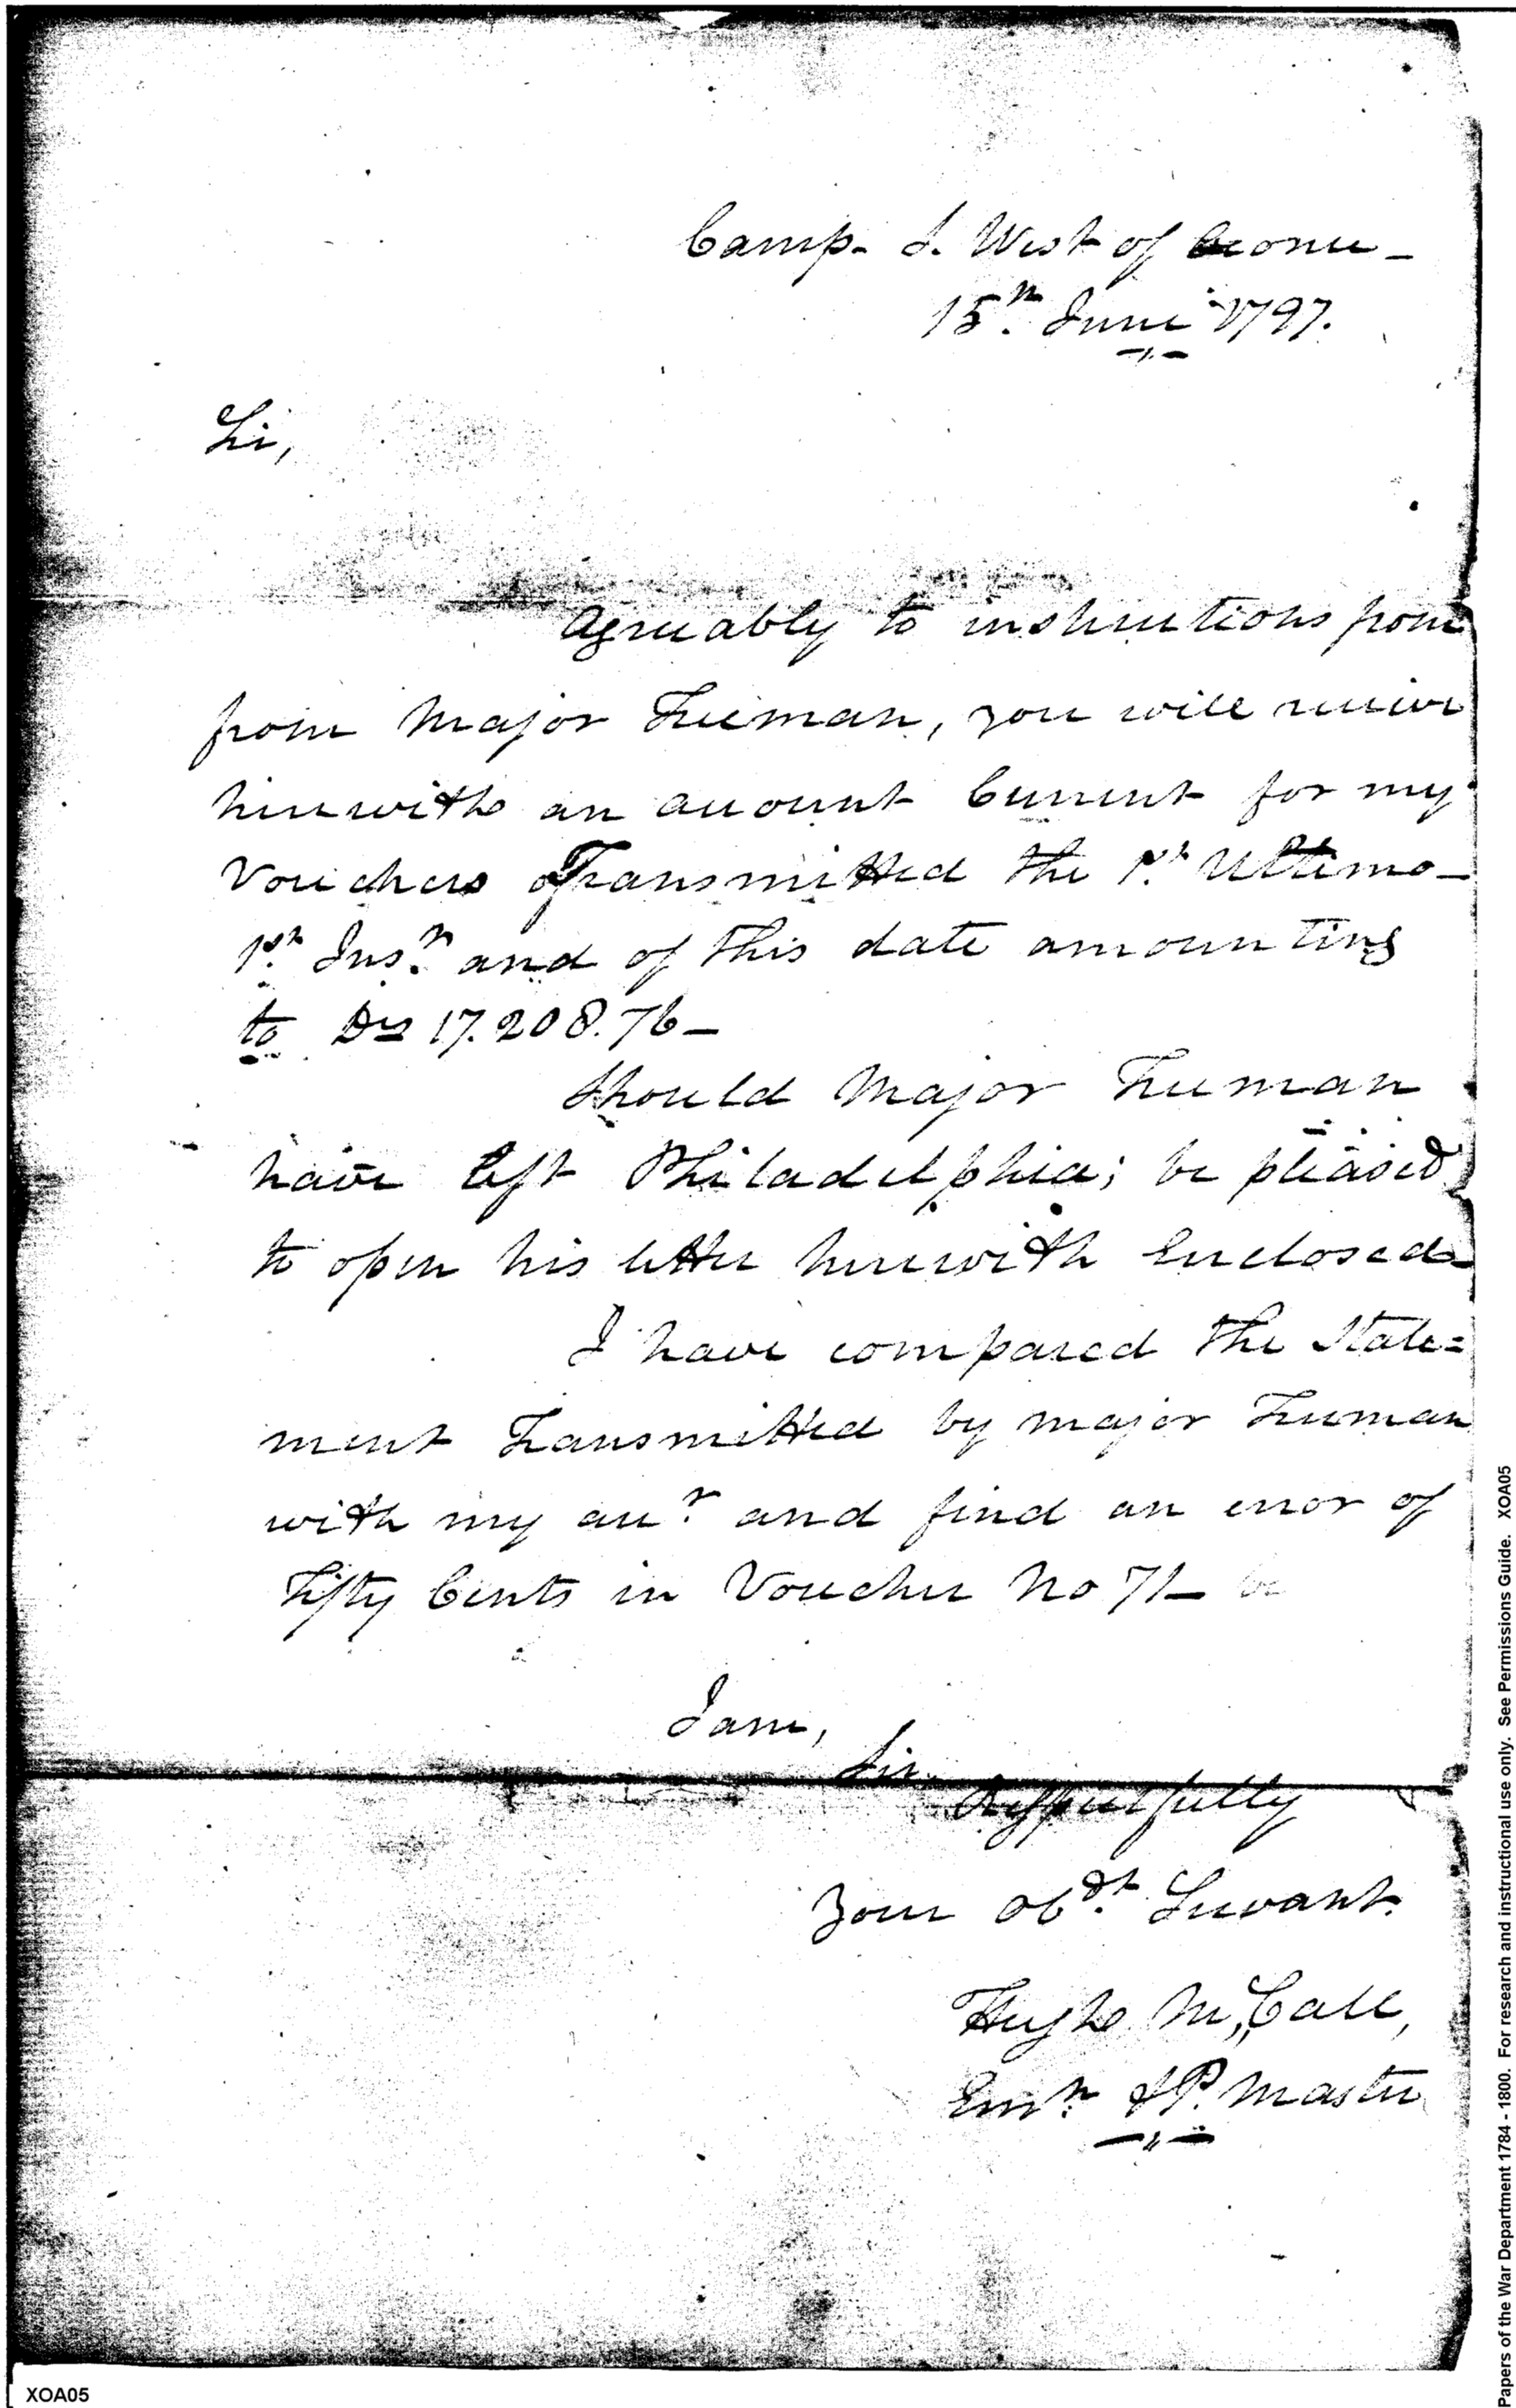 Camp. S. West of Oconee -
15th. June 1797.
Sir,
Agreeably to instructions from
from Major Freeman, you will receive
herewith an account Current for my
Vouchers Transmitted the 1st. Ultimo -
1st. Inst. and of this date amounting
to Drs 17.208.76 -
Should Major Freeman
have left Philadelphia; be pleased
to open his letter herewith Enclosed -
I have compared the State=
ment Transmitted by major Freeman
with my acct. and find an error of
Fifty Cents in Voucher No 71 -
I am,
Sir.
Respectfully
Your obdt. Servant.
Hugh McCall,
Ens. & P. Master
XOA05
Papers of the War Department 1784 - 1800. For research and instructional use only. See Permissions Guide. XOA05